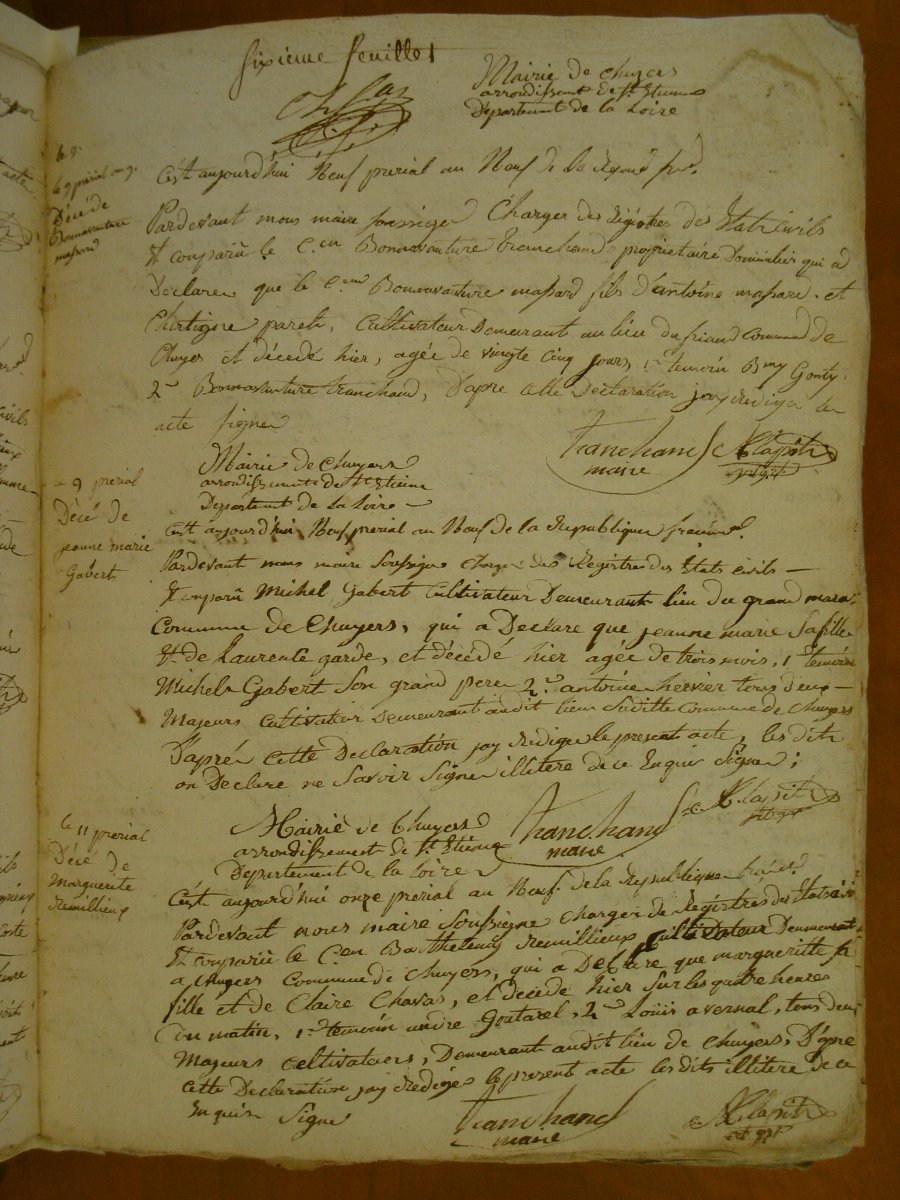 sixieme feuille
Mairie de Chuyers
arrondissent de St Etienne
Departement de la Loire
le 9 prerial an 9
Décé de
Bonnavanture
massard
C'est aujourd'hui Neuf prerial an Neuf de la
Pardevant nous maire soussigner Charger des Régistres des Etats Civils
Et comparû le C.en Bonnavanture Tranchand proprietaire Domicilier qui a
Declare que le C.en Bonnavanture massard fils d'antoine massard et
cultivateur Demeurant au lieu du Commune de
Chuyer et décedé hier, agée de vingte cinq jours, 1er temoin Bmy Gonty
2e Bonnavanture tranchand, D'apre cette Declaration jay redigér le
acte signer
Tranchand
maire
9 prerial
Décé de
jeanne marie
Gabert
Mairie de Chuyers
arrondissement de St Etiene
Departement de la Loire
C'est aujourd'hui Neuf prerial an Neuf de la Republique
Pardevant nous maire Soussigne Charger des Régistres des Etats Civils
Et comparû Michel Gabert Cultivateur Demeurant lieu du grand
Commune de Chuyers, qui a Declare que jeanne marie Sa fille
Et de Laurence garde, et décédé hier agée de trois mois, 1 temoin
Michel Gabert Son grand pere 2e antoine hervier tous deux
Majeurs cultivateur Demeurant audit lieu Suditte Commune de Chuyers
D'apré cette Declaration jay redigé le present acte, les dits
on Declare ne Savoir Signer illitere de ce Enquis Signer;
Tranchand
maire
le 11 prerial
Décé de
Marguerite
Remillieux
Mairie de Chuyers
arrondissement de St Etienne
Departement de la Loire
C'est aujourd'hui onze prerial an Neuf de la Republique
Pardevant nous maire Soussigne Charger de Régistres des Etats
Et comparû le Cen Barthelemy Remillieux Cultivateur Demeurant
a Chuyers Commune de Chuyers, qui a Declare que margueritte sa
fille et de Claire Chavas, et décédé hier sur les quatre heures
du matin, 1er temoin andre Goutarel, 2e Loüis avernal, tous deux
Majeurs celtivatuers, Demeurant audit lien de Chuyers, D'apre
cette Declaration jay redigé le present acte les dits illitere de ce
Enquis Signe
Tranchand
maire